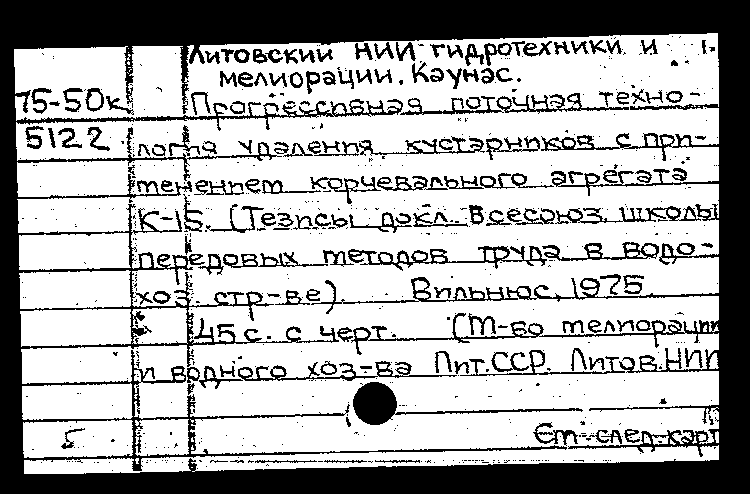 Литовский НИИ гидротехники и 1.
мелиорации. Каунас.
75-50к
5122
Прогрессивная поточная техно-
логия удаления кустарников с при-
менением корчевального агрегата
К-15. (Тезисы докл. Всесоюз. школы
передовых методов труда в водо-
хоз. стр-ве). Вильнюс, 1975.
45 с. с черт. (М-во мелиорации
и водного хоз-ва Лит.ССР. Литов.НИИ
5
См. след. карт